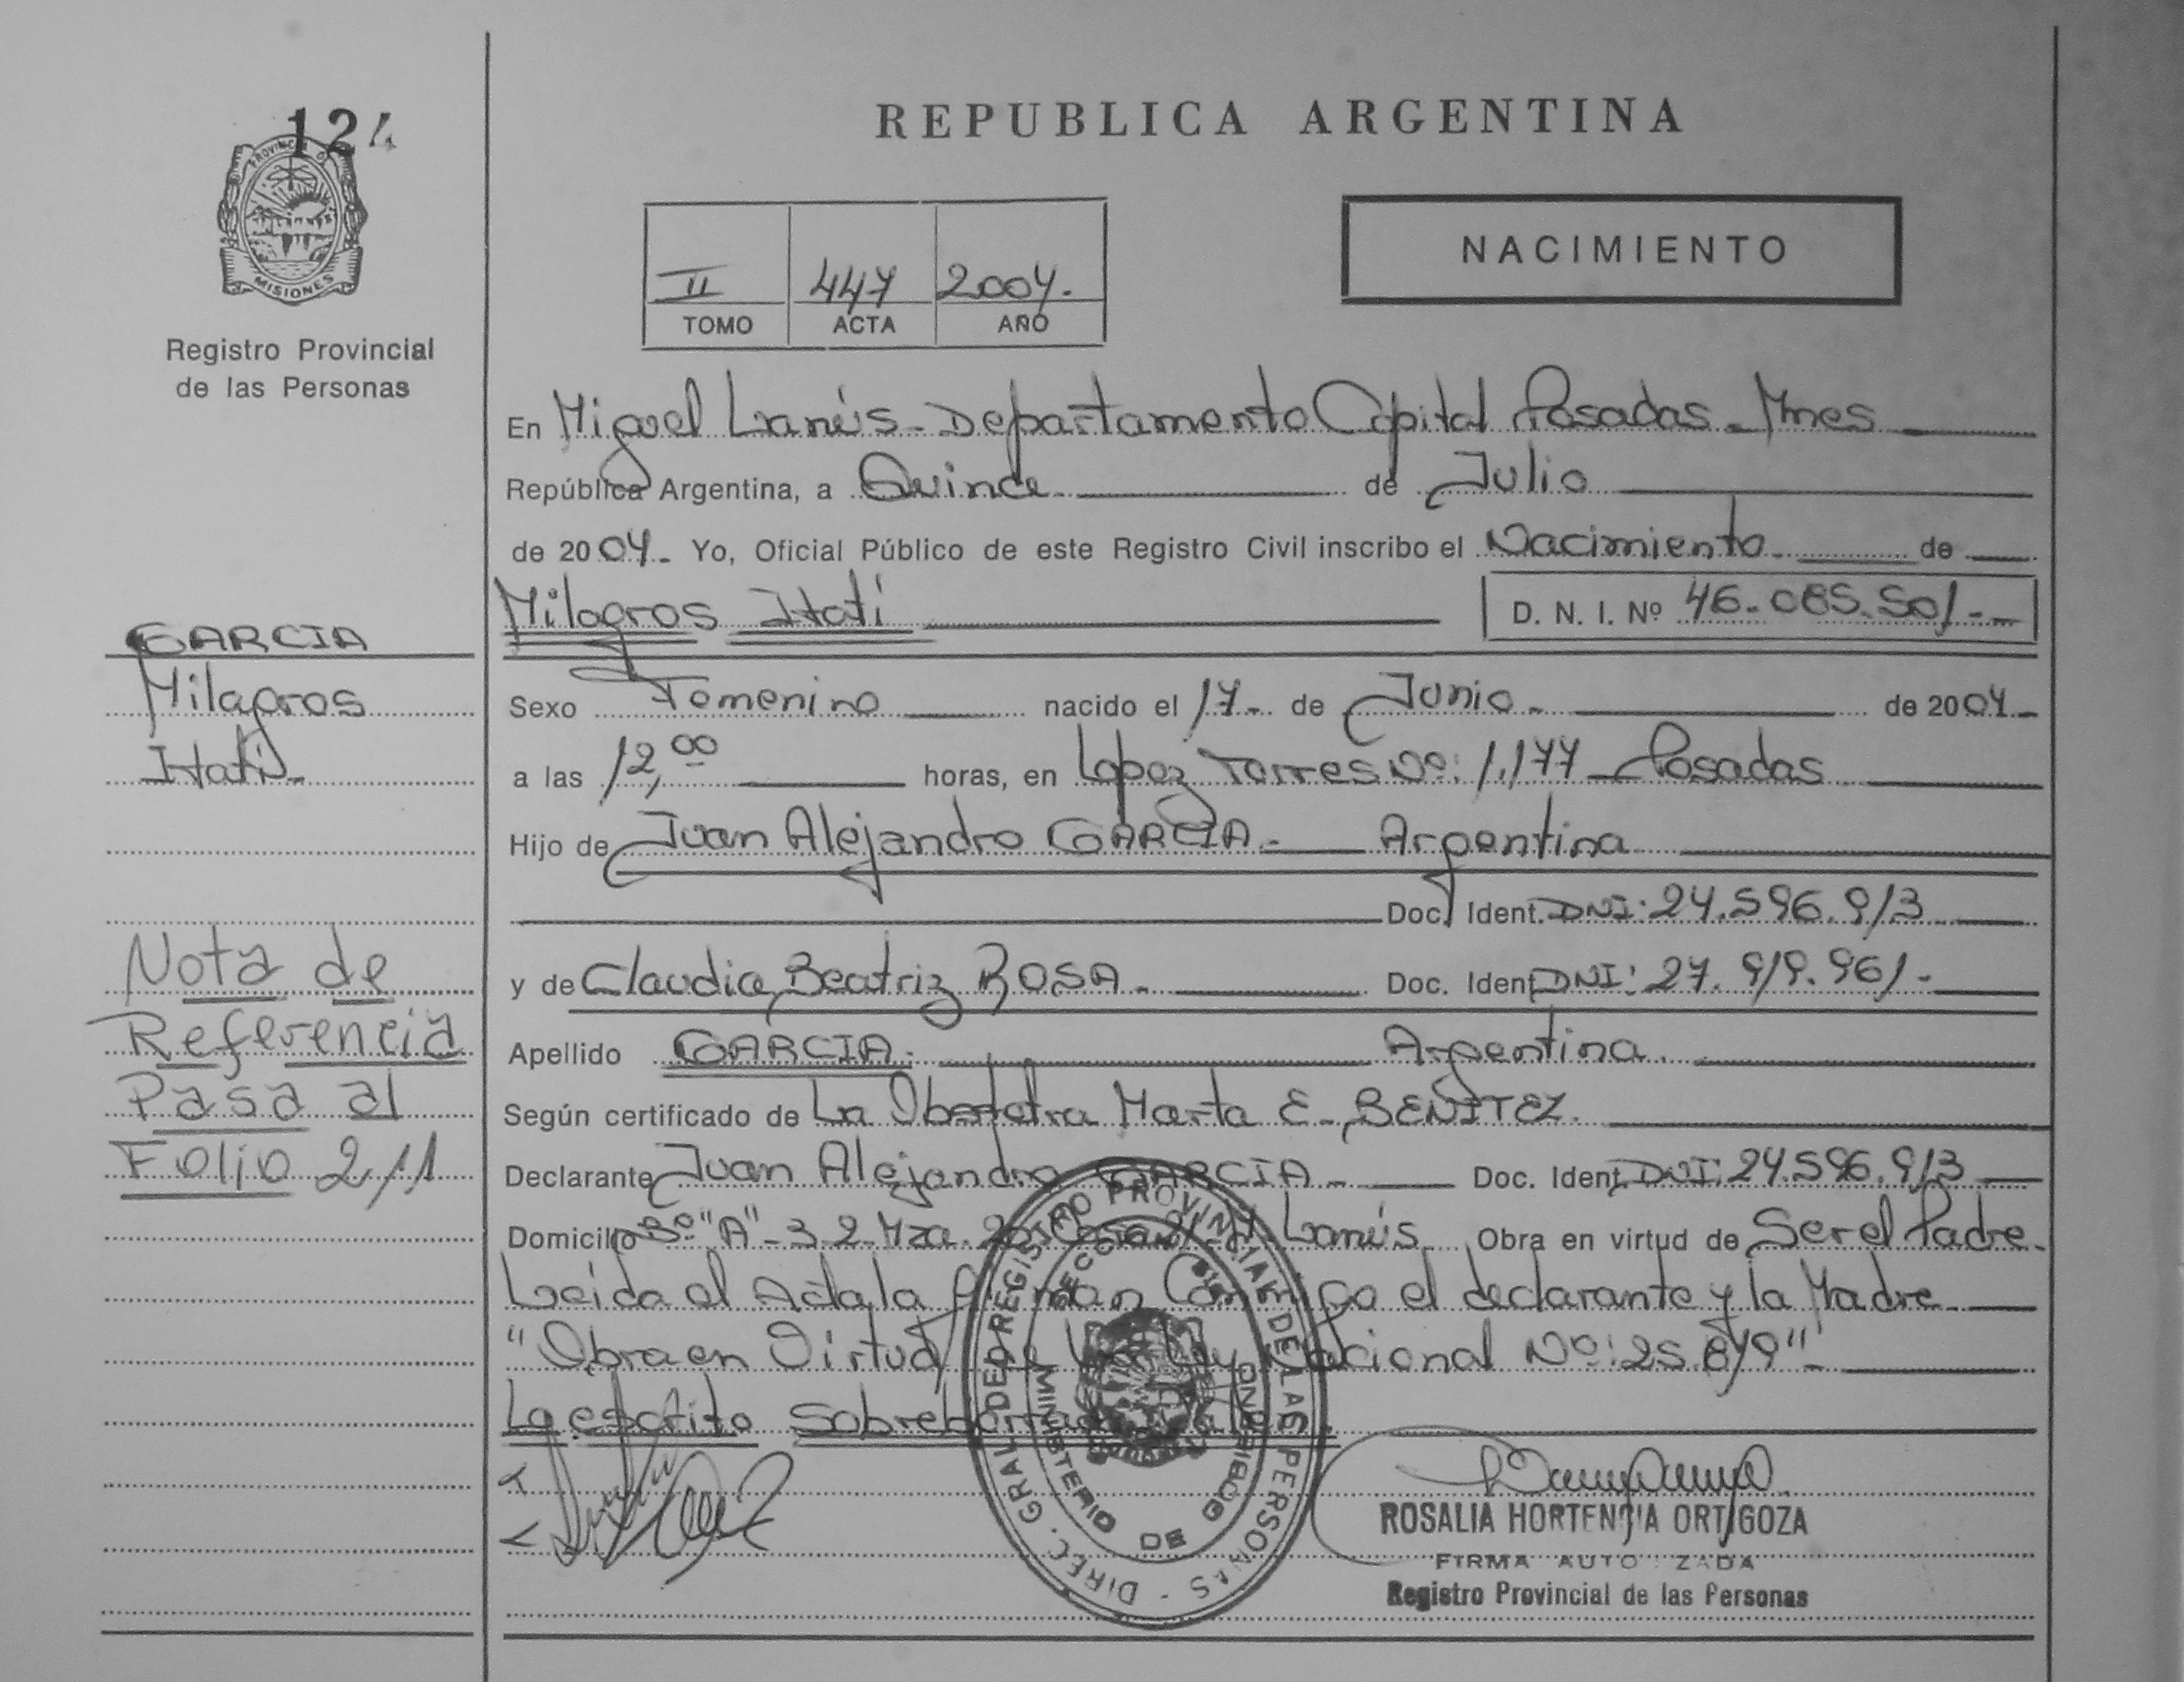 124
PROVINCIA D
MISIONES
Registro Provincial
de las Personas
GARCIA
Milagros
Itatí.-
Nota de
Referencia
Pasa al
Folio 211
REPUBLICA ARGENTINA
NACIMIENTO
II 447 2004.
TOMO ACTA AÑO
En Miguel Lanús - Departamento Capital Posadas - Mnes
República Argentina, a Quince de Julio
de 2004.- Yo, Oficial Público de este Registro Civil inscribo el Nacimiento. de
Milagros Itatí D. N. I. Nº 46.085.501.-
Sexo Femenino nacido el 17.- de Junio.- de 2004.-
a las 12,00 horas, en Lopez Torres Nº: 1.177 - Posadas
Hijo de Juan Alejandro GARCIA.- Argentina
Doc. Ident. DNI: 24.596.913
y de Claudia Beatriz ROSA.- Doc. Ident. DNI: 27.919.961.-
Apellido GARCIA. Argentina.
Según certificado de La Obstetra Marta E. BENITEZ.
Declarante Juan Alejandro GARCIA.- Doc. Ident. DNI: 24.596.913
Domicilio Bº "A" - 3 2 - Mza. Lanús. Obra en virtud de Ser el Padre.
Leída el Acta la Firman Conmigo el declarante y la Madre
"Obra en Virtud de la Ley Nacional Nº: 25.819"
Lo escrito sobreborrado Vale
DIREC. GRAL. DE REGISTRO PROVINCIAL DE LAS PERSONAS
MINISTERIO DE GOBIERNO
ROSALIA HORTENCIA ORTIGOZA
FIRMA AUTORIZADA
Registro Provincial de las Personas